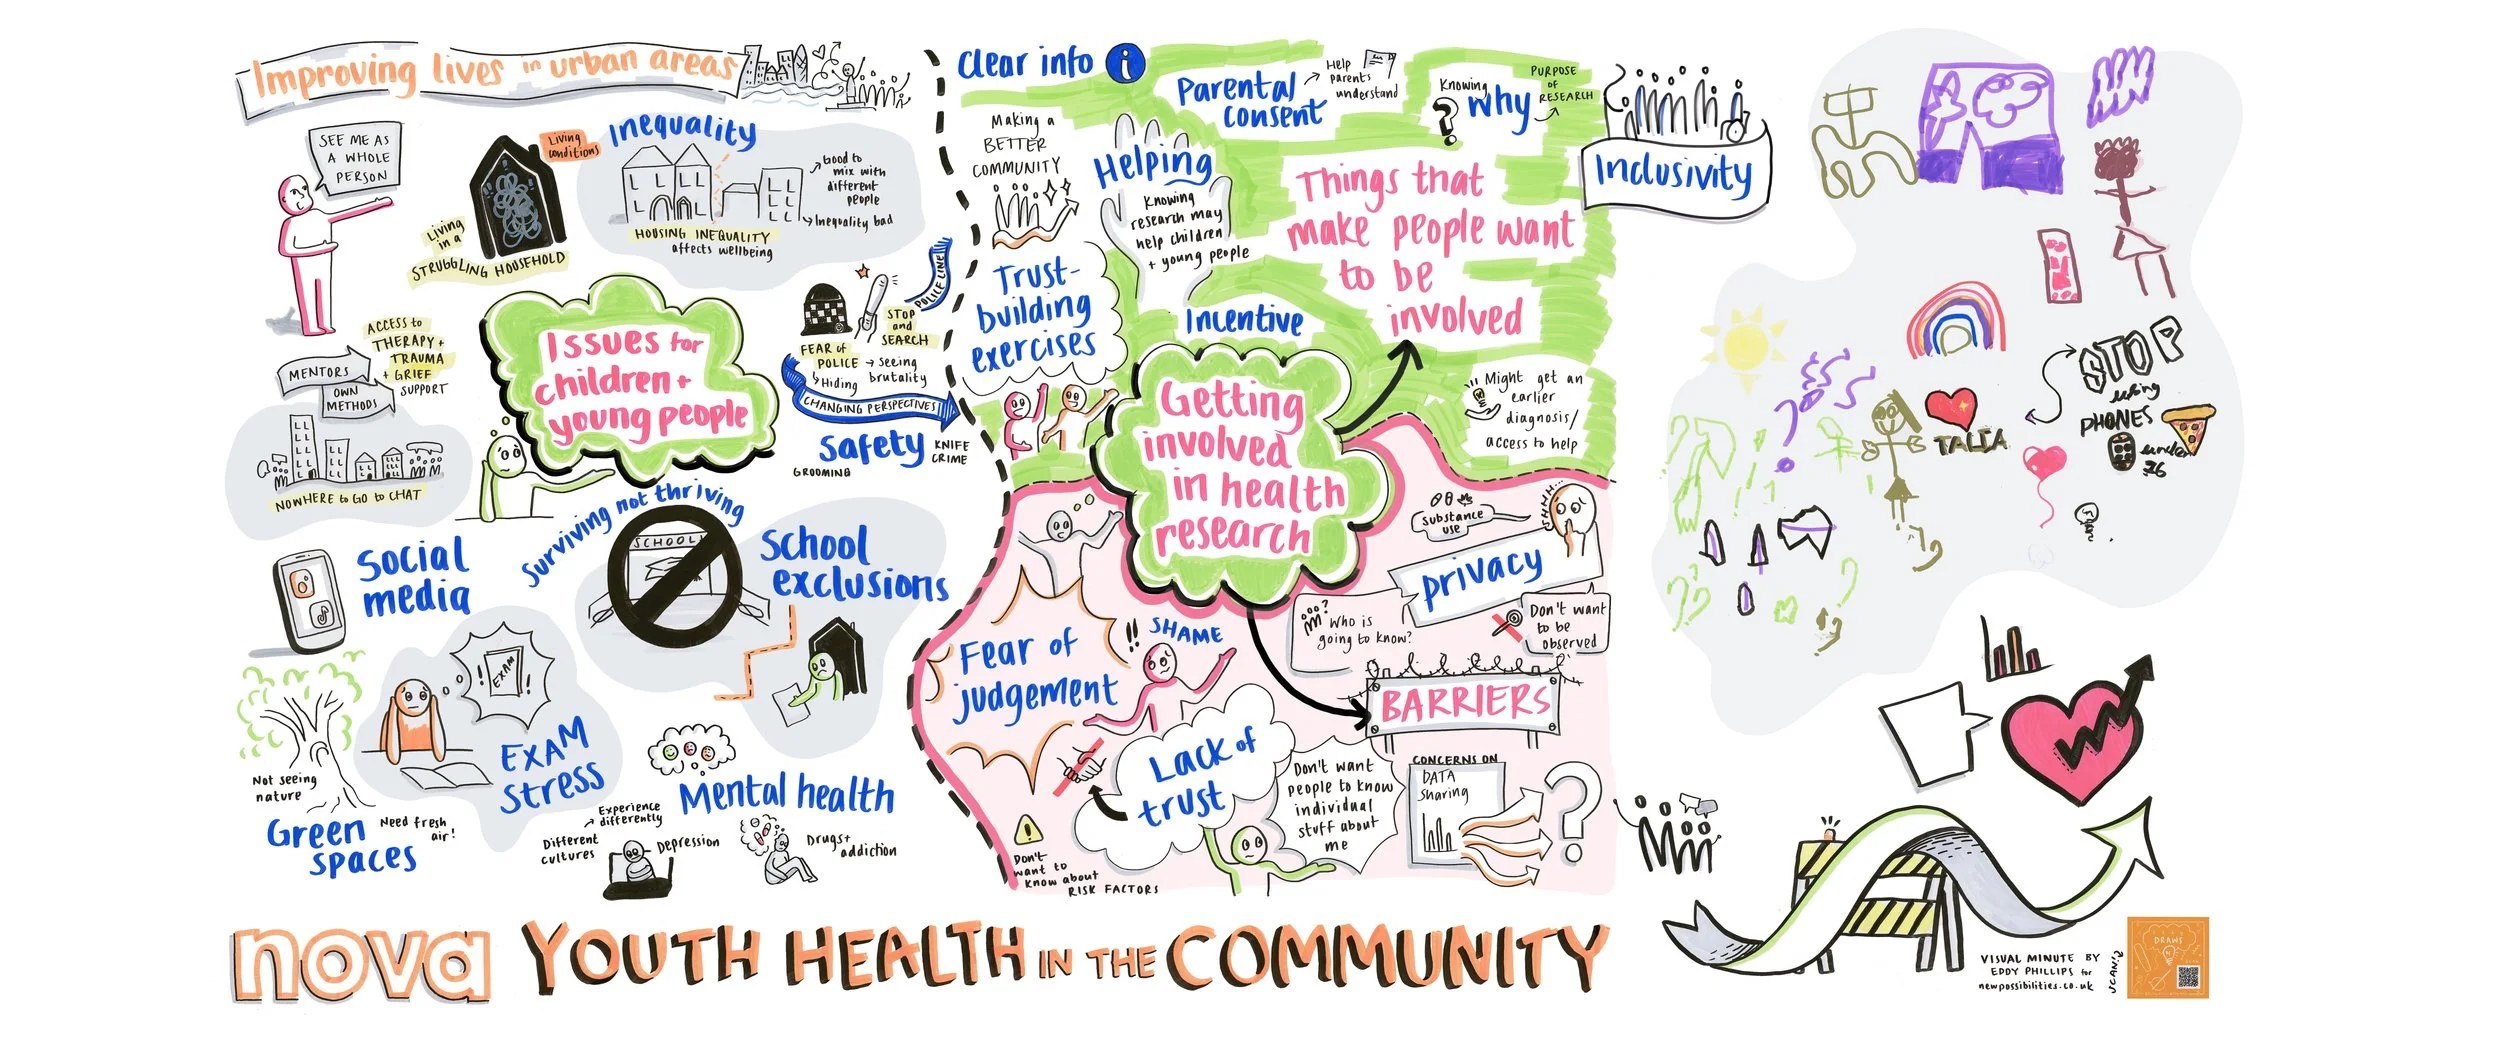 Improving lives in urban areas
SEE ME AS
A WHOLE
PERSON
Living
conditions
Living
in a
STRUGGLING HOUSEHOLD
Inequality
Good to
mix with
different
people
Inequality bad
HOUSING INEQUALITY
affects wellbeing
ACCESS to
THERAPY +
TRAUMA
+ GRIEF
SUPPORT
MENTORS
OWN
METHODS
NOWHERE to GO to CHAT
Issues for
children +
young people
POLICE LINE
STOP
and
SEARCH
FEAR of
POLICE
Seeing
brutality
Hiding
CHANGING PERSPECTIVES
Safety
KNIFE
CRIME
GROOMING
Surviving not thriving
SCHOOL
School
exclusions
Social
media
EXAM
EXAM
Stress
Not seeing
nature
Green
spaces
Need fresh
air!
Mental health
Experience
differently
Different
cultures
Depression
Drugs +
addiction
Clear info i
Making a
BETTER
COMMUNITY
Trust-
building
exercises
Parental
consent
Help
parents
understand
Knowing
?
Why
PURPOSE
OF
RESEARCH
Helping
Knowing
research may
help children
+ young people
Incentive
Things that
make people want
to be
involved
Might get an
earlier
diagnosis/
access to help
Inclusivity
Getting
involved
in health
research
Fear of
judgement
!! SHAME
Substance
use
SHHH...
privacy
Who is
going to know?
Don't want
to be
observed
BARRIERS
Lack of
trust
Don't want
people to know
individual
stuff about
me
CONCERNS ON
DATA
sharing
?
Don't
want to
know about
RISK FACTORS
STOP
using
PHONES
under
TALIA
nova YOUTH HEALTH IN THE COMMUNITY
VISUAL MINUTE BY
EDDY PHILLIPS for
newpossibilities.co.uk
SCAN!
DRAWS